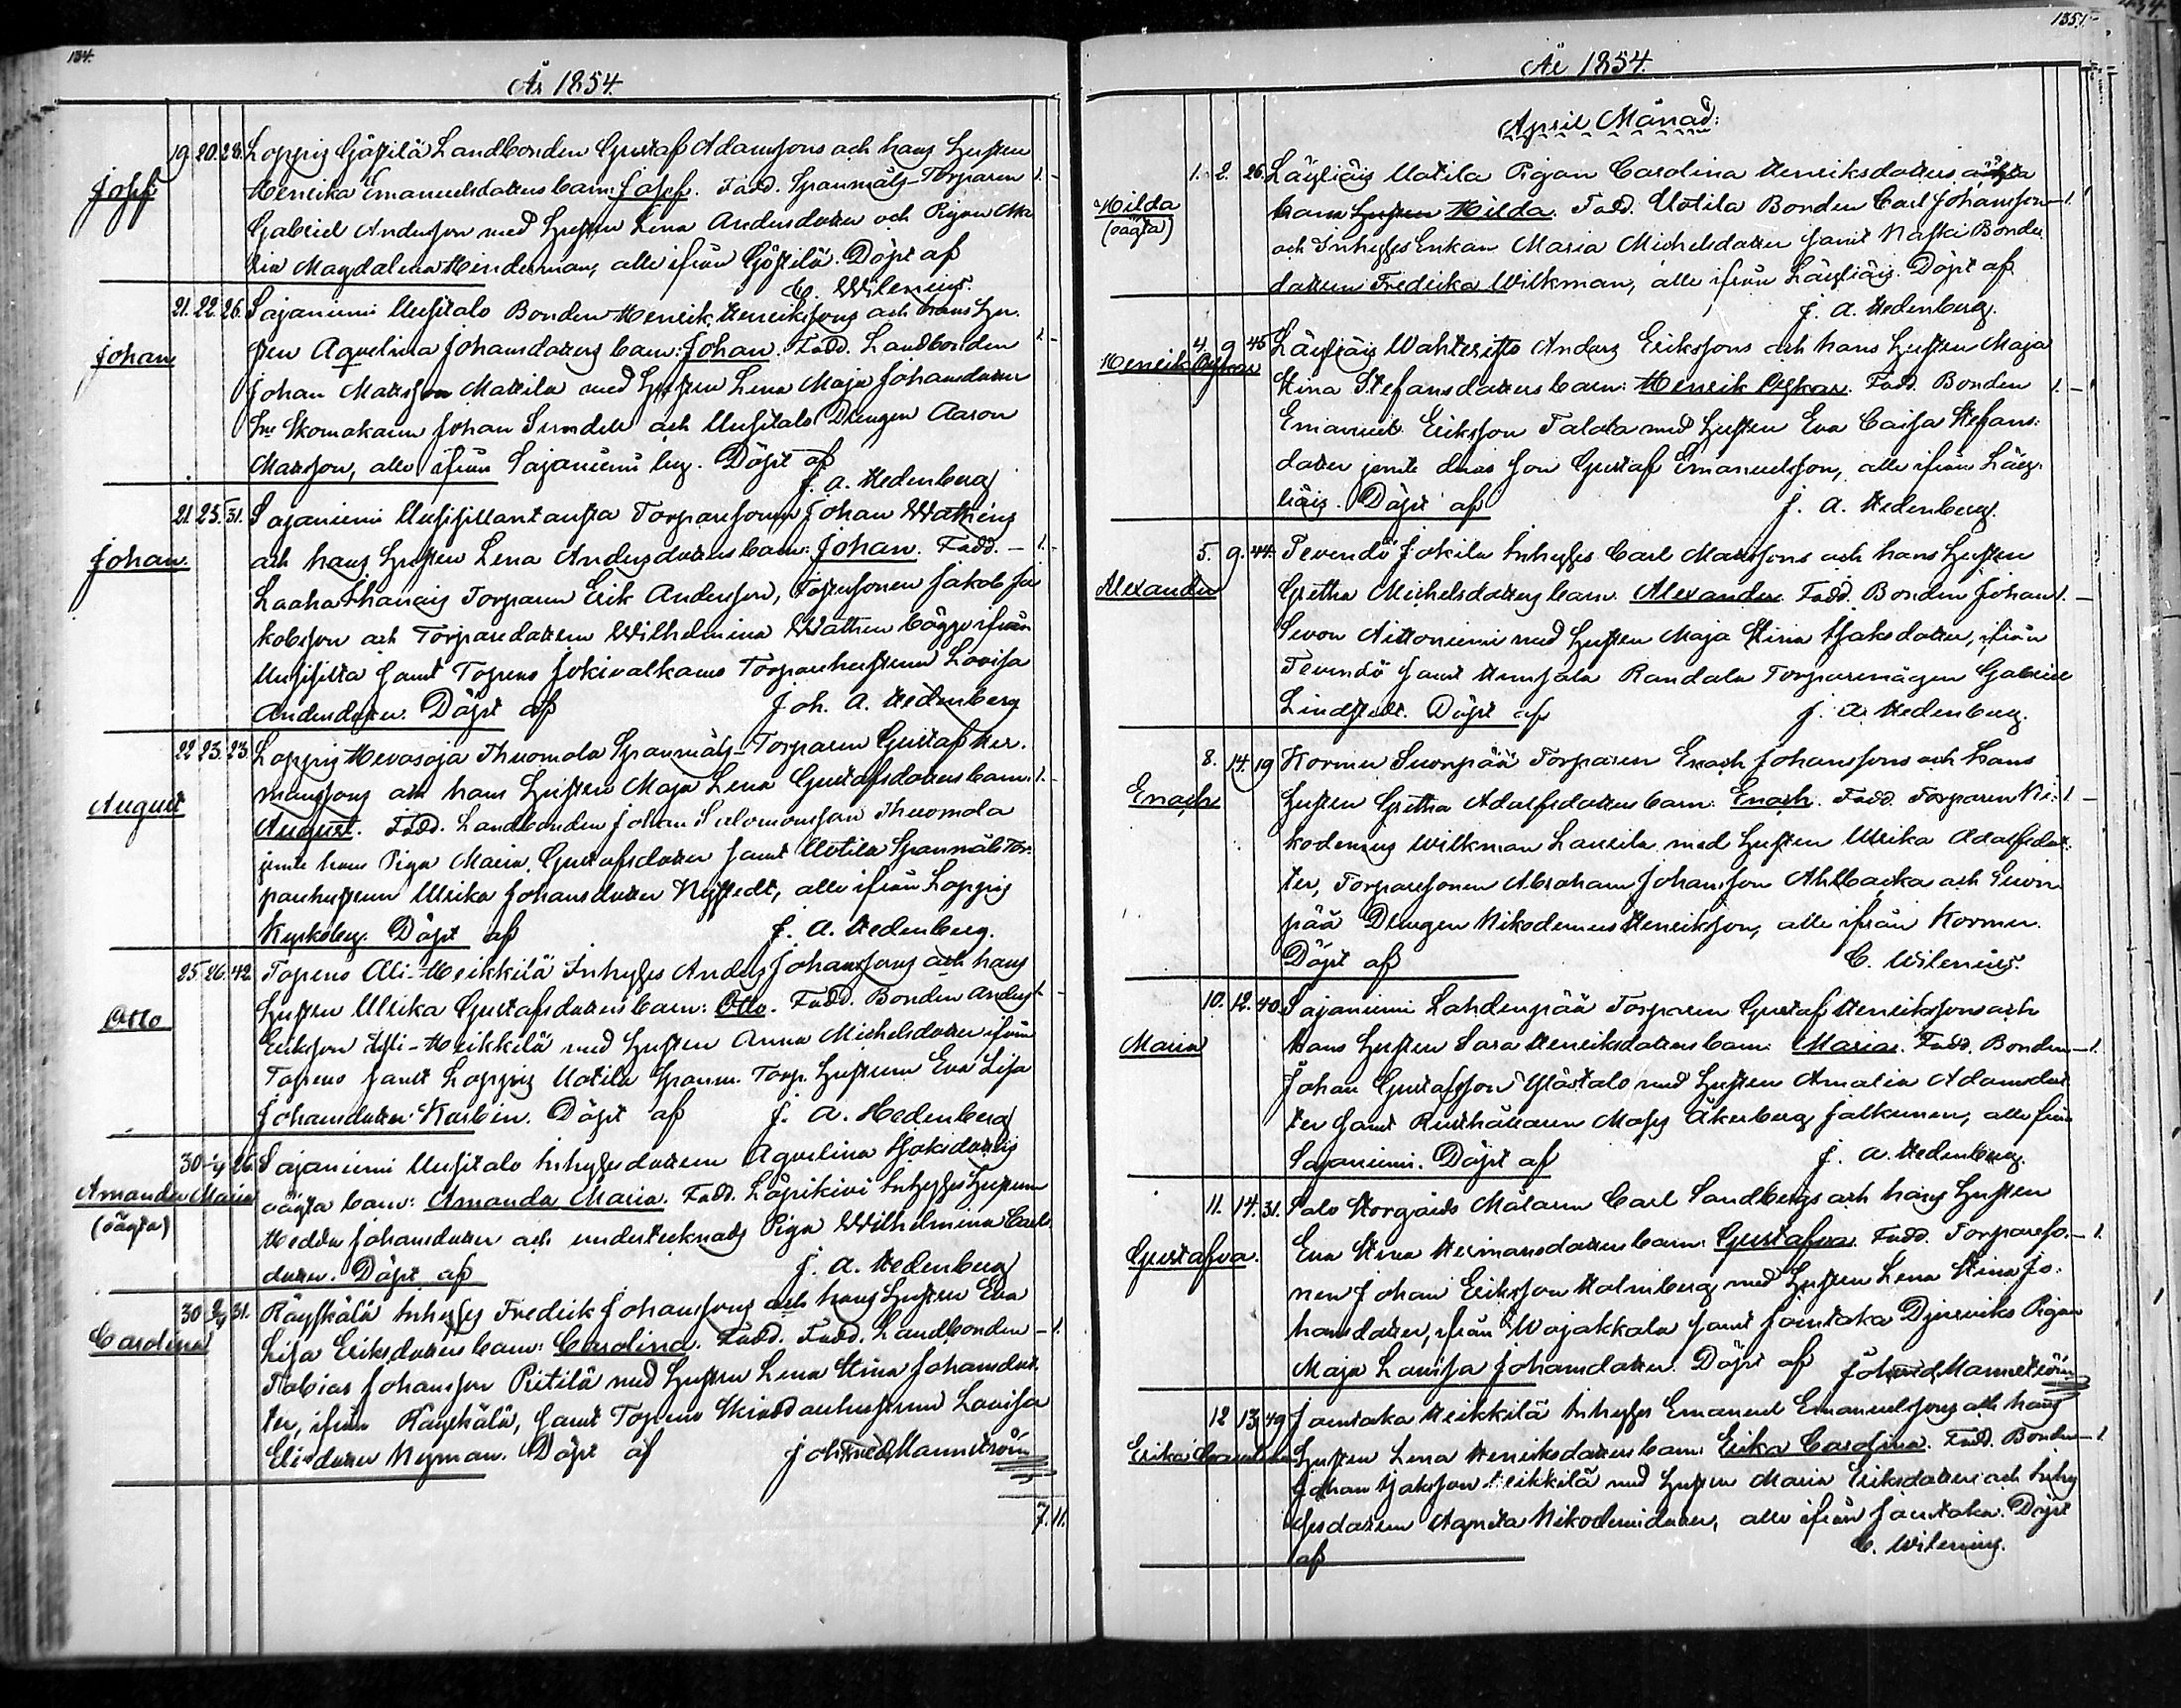 134.
År 1854.
19. 20. 28. Loppis Göstilä Landbonden Gustaf Adamssons och hans Hustru
Josef
Henrika Emanuelsdotters barn: Josef. Fadd. Spanmåls-Torparen 1. -
Gabriel Andersson med Hustru Lena Andersdotter och Pigan Ma
ria Magdalena Hinderman, alle ifrån Göstilä. Döpt af
C. Wilenius.
21. 22. 26. Sajaniemi Uusitalo Bonden Henrik Henrikssons och hans Hu-
Johan
stru Aqvelina Johansdotters barn: Johan. Fadd. Landbonden 1. -
Johan Matsson Mattila med Hustru Lena Maja Johansdotter
Sne Skomakaren Johan Sundell och Uusitalo Drengen Aaron
Matsson, alle ifrån Sajaniemi by. Döpt af
J. A. Hedenberg
21. 25. 31. Sajaniemi Torparesonen Johan Wathens
Johan.
och hans Hustru Lena Andersdotters barn: Johan. Fadd. - 1. -
Torparen Erik Andersson, Fostersonen Jakob Ja
kobsson och Torparedottren Wilhelmina Wathen bägge ifrån
samt Topeno Jokivalkama Torparehustrun Lovisa
Andersdotter. Döpt af Joh. A. Hedenberg
22. 23. 23. Loppis Hevosoja Thuomola Spanmåls-Torparen Gustaf Her-
manssons och hans Hustru Maja Lena Gustafsdotters barn: 1. -
August
August. Fadd. Landbonden Johan Salomonsson Thuomola
jemte hans Piga Maria Gustafsdotter samt Uotila Spanmåls Tor-
parehustrun Ulrika Johansdotter Nystedt, alle ifrån Loppis
Kyrkoby. Döpt af J. A. Hedenberg.
25. 26. 42. Topeno Ali-Heikkilä Inhyses Anders Johanssons och hans
Otto
Hustru Ulrika Gustafsdotters barn: Otto. Fadd. Bonden Anders 1. -
Eriksson Ali-Heikkilä med Hustru Anna Michelsdotter ifrån
Topeno samt Loppis Uotila Spanm. Torp. Hustrun Eva Lisa
Johansdotter Karbin. Döpt af J. A. Hedenberg
30. 1/4 26. Sajaniemi Uusitalo Inhysesdottren Aqvelina Isaksdotters
Amanda Maria
(oägta)
oägta barn: Amanda Maria. Fadd. Läpikivi Inhyses Hustrun
Hedda Johansdotter och undertecknads Piga Wilhelmina Carls
dotter. Döpt af J. A. Hedenberg
30. 2/4 31. Räyskälä Inhyses Fredrik Johanssons och hans Hustru Eva
Carolina
Lisa Eriksdotters barn: Carolina. Fadd. Fadd. Landbonden - 1.
Tobias Johansson Pietilä med Hustru Lena Stina Johansdot-
ter, ifrån Räyskälä, samt Topeno Skräddarehustrun Lovisa
Elisdotter Nyman. Döpt af Joh Fred Mannström
7. 11.
135.
År 1854.
April Månad:
1. 2. 26. Läyliäis Uotila Pigan Carolina Henriksdotters oägta
Hilda
(oägta)
barn Hustru Hilda. Fadd. Uotila Bonden Carl Johansson - 1.
och Inhyses Enkan Maria Michelsdotter samt Naski Bonde
dottren Fredrika Wilkman, alle ifrån Läyliäis. Döpt af
J. A. Hedenberg.
4. 9. 45. Läyliäis Wahteristo Anders Erikssons och hans Hustru Maja
Henrik Oskar
Stina Stefansdotters barn: Henrik Oskar. Fadd. Bonden 1. -
Emanuel Eriksson Talola med Hustru Eva Caisa Stefans-
dotter jemte deras son Gustaf Emanuelsson, alle ifrån Läy-
liäis. Döpt af J. A. Hedenberg.
5. 9. 44. Tevendö Jokila Inhyses Carl Matssons och hans Hustru
Alexander
Gretha Michelsdotters barn: Alexander. Fadd. Bonden Johan 1. -
Simon Aittoniemi med Hustru Maja Stina Isaksdotter, ifrån
Tevendö samt Hunsala Randala Torparemågen Gabriel
Lindstedt. Döpt af J. A. Hedenberg.
8. 14. 19 Kormu Suonpää Torparen Enoch Johanssons och hans
Enoch
Hustru Gretha Adolfsdotters barn: Enoch. Fadd. Torparen Ni- 1. -
kodemus Wilkman Laurila med Hustru Ulrika Adolfsdot-
ter, Torparesonen Abraham Johansson Ahlbacka och Suon
pää Drengen Nikodemus Henriksson, alle ifrån Kormu.
Döpt af C. Wilenius.
10. 12. 40. Sajaniemi Lahdenpää Torparen Gustaf Henrikssons och
Maria
hans Hustru Sara Henriksdotters barn: Maria. Fadd. Bonden - 1.
Johan Gustafsson Ylöstalo med Hustru Amalia Adamsdot
ter samt Rusthållaren Moses Åkerberg Jalkunen, alle från
Sajaniemi. Döpt af J. A. Hedenberg.
11. 14. 31. Salo Storgårds Målaren Carl Sandbergs och hans Hustru
Gustafva.
Eva Stina Hermansdotters barn: Gustafva. Fadd. Torpareso- - 1.
nen Johan Eriksson Holmberg med Hustru Lena Stina Jo-
hansdotter, ifrån Wojakkala samt Joentaka Djurviks Pigan
Maja Lovisa Johansdotter. Döpt af Joh Fred Mannström
12 13 49 Joentaka Heikkilä Inhyses Emanuel Emanuelssons och hans
Erika Carolina
Hustru Lena Henriksdotters barn: Erika Carolina. Fadd. Bonden - 1.
Johan Isaksson Heikkilä med Hustru Maria Eriksdotter och Inhy
sesdottren Agneta Nikodemidotter, alle ifrån Joentaka. Döpt
af C. Wilenius.